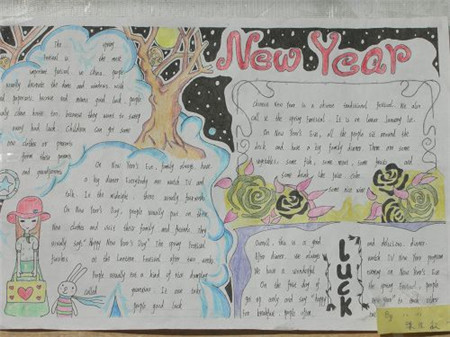 New Year
The spring
festival is the most
important festival in China. people
usually decorate the doors and windows with
red papercuts. means
usually clean house too. because they want to sweep
away bad luck. Children can get some
new clothes or presents
from their parents
and grandparents
On New Year's Eve, family always have
a big dinner. Everybody are watch TV and
talk. In the midnight, there usually fireworks
On New Year's Day, people usually put on their
New clothes and visit their family and friends. they
usually say: "Happy New Year's Day". The Spring Festival
finishes at the Lantern Festival after two weeks.
People usually eat a kind of rice dumpling
called yuanxiao. It can take
people good luck
Chinese New Year is a Chinese traditional festival. We also
call it the spring festival. It is in
On New Year's Eve, all the people sit around the
desk and have a big family dinner. There are some
vegetables, some fish, some meat, some juice and
some drink like juice coke.
some rice wine
LUCK
Overall, this is a good and delicious dinner.
After dinner, we always watch TV New Year program
We have a wonderful evening in New Year's Eve.
On the first day of the spring festival, people
get up early and say "happy new year" to each other
for breakfast, people often
By